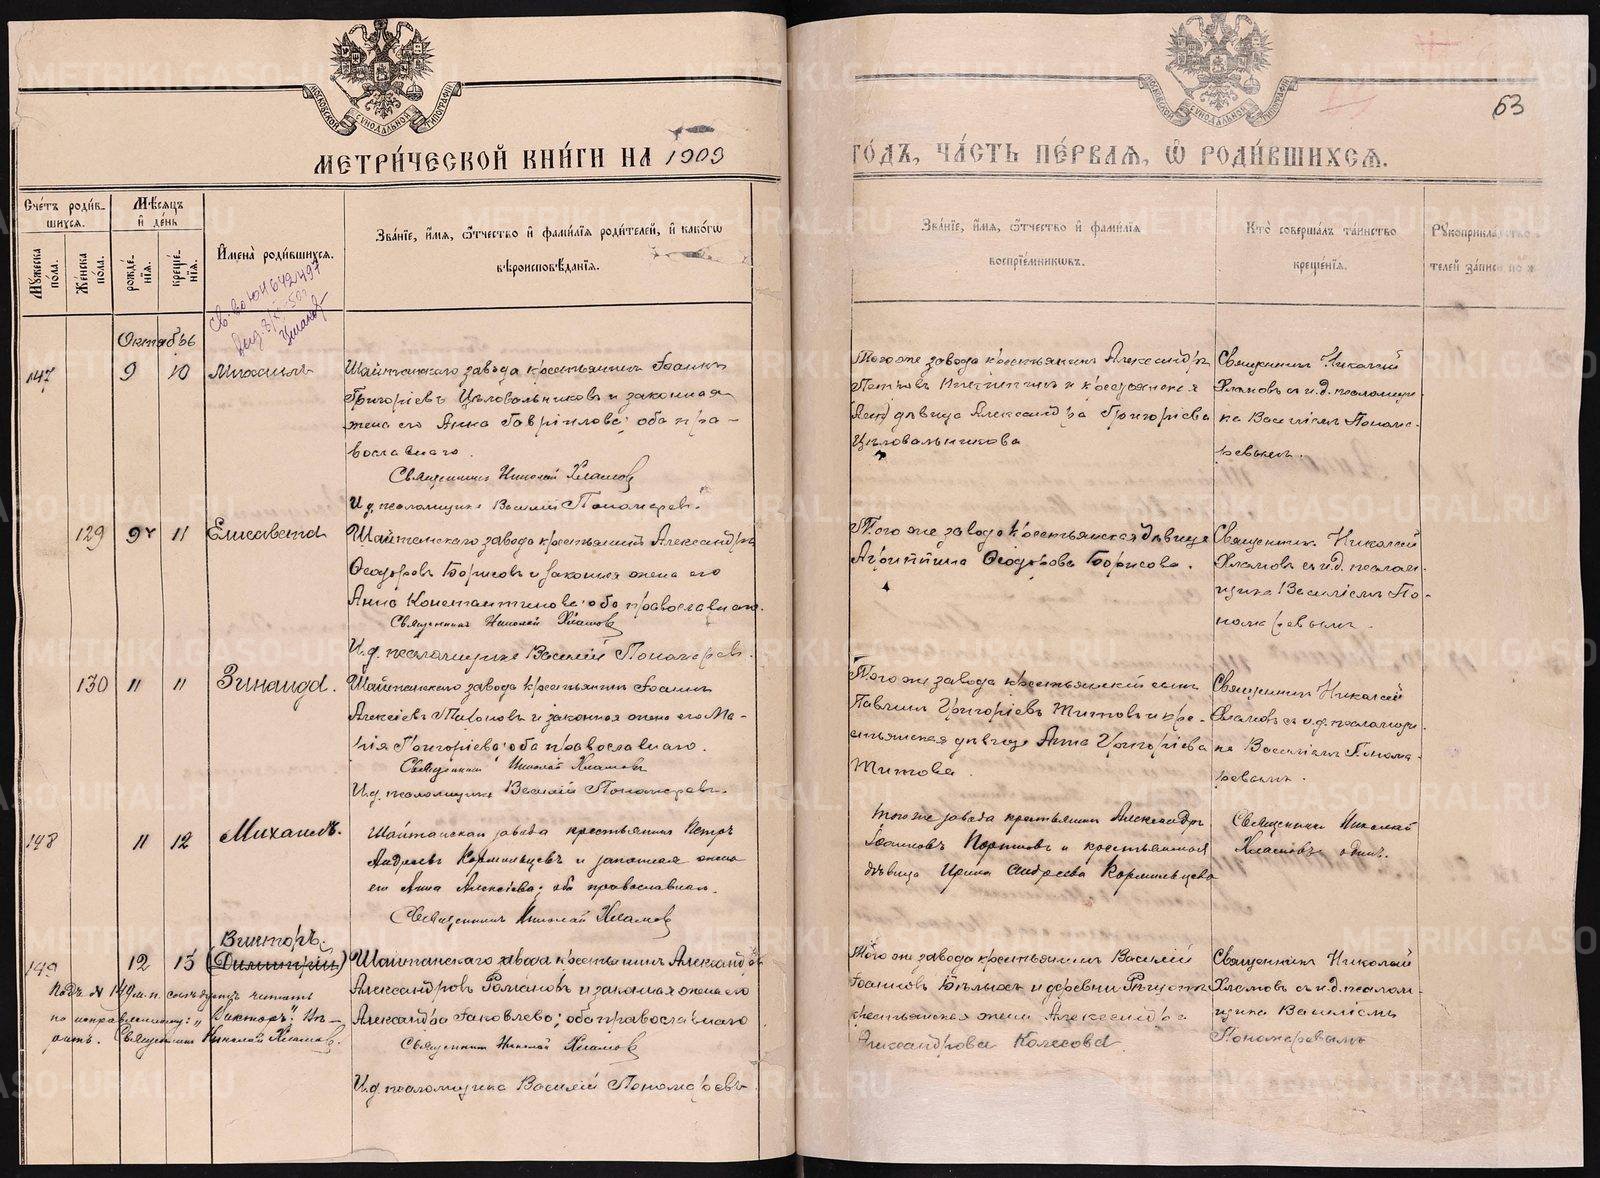 МЕТРИ́ЧЕСКОЙ КНИ́ГИ НА 1909
ГО́ДЪ, ЧА́СТЬ ПЕ́РВАЯ, Ѡ҆ РОДИ́ВШИХСЯ.
63
МОСКОВСКОЙ СѴНОДАЛЬНОЙ ТИПОГРАФІИ
МОСКОВСКОЙ СѴНОДАЛЬНОЙ ТИПОГРАФІИ
Сче́тъ роди́в-
шихся.
Мѣсяцъ
и҆ де́нь
Мꙋжеска пола.
Же́нска по́ла.
рожде́-
нїѧ.
креще́-
нїѧ.
И҆мена̀ роди́вшихся.
Зва́нїе, и҆́мѧ, ѻ҆́тчество и҆ фами́лїѧ роди́телей, и҆ како́гѡ
вѣроисповѣ́данїѧ.
Зва́нїе, и҆́мѧ, ѻ҆́тчество и҆ фами́лїѧ
воспрїе́мникѡвъ.
Кто̀ соверша́лъ та́инство
креще́нїѧ.
Рꙋкоприкла́дство
телей за́писи по
Октябрь
147 9 10 Михаилъ
Шайтанскаго завода крестьянинъ Іоаннъ
Григоріевъ Цѣловальниковъ и законная
жена его Анна Гавріилова; оба пра-
вославнаго.
Священникъ Николай Хламовъ
И.д. псаломщика Василій Пономаревъ.
Того же завода крестьянинъ Александръ
Петровъ и крестьянская
дѣвица Александра Григоріева
Цѣловальникова
Священникъ Николай
Хламовъ съ и.д. псаломщи-
ка Василіемъ Понома-
ревымъ.
129 9 11 Елисавета
Шайтанскаго завода крестьянинъ Александръ
Ѳеодоровъ Борисовъ и законная жена его
Анна Константинова; оба православнаго.
Священникъ Николай Хламовъ
И.д. псаломщика Василій Пономаревъ.
Того же завода крестьянская дѣвица
Агриппина Ѳеодорова Борисова.
Священникъ Николай
Хламовъ съ и.д. псалом-
щика Василіемъ По-
номаревымъ.
130 11 11 Зинаида.
Шайтанскаго завода крестьянинъ Іоаннъ
Алексіевъ и законная жена его Ма-
рія Григоріева; оба православнаго.
Священникъ Николай Хламовъ
И.д. псаломщика Василій Пономаревъ.
Того же завода крестьянскій сынъ
Павлинъ Григоріевъ Титовъ и кре-
стьянская дѣвица Анна Григоріева
Титова.
Священникъ Николай
Хламовъ съ и.д. псаломщи-
ка Василіемъ Понома-
ревымъ.
148 11 12 Михаилъ.
Шайтанскаго завода крестьянинъ Петръ
Андреевъ Кормильцевъ и законная жена
его Анна Алексіева; оба православнаго.
Священникъ Николай Хламовъ
Того же завода крестьянинъ Александръ
Іоанновъ и крестьянская
дѣвица Ирина Андреева Кормильцева
Священникъ Николай
Хламовъ одинъ.
Викторъ.
149 12 15 (Димитрій)
Шайтанскаго завода крестьянинъ Александръ
Александровъ Романовъ и законная жена его
Александра Іаковлева; оба православнаго
Священникъ Николай Хламовъ
И.д. псаломщика Василій Пономаревъ
Подъ № 149 м.п. слѣдуетъ читать
по исправленному: "Викторъ".
Священникъ Николай Хламовъ.
Того же завода крестьянинъ Василій
Іоанновъ Бѣлыхъ и деревни
крестьянская жена Александра
Александрова Колесова
Священникъ Николай
Хламовъ съ и.д. псалом-
щика Василіемъ
Пономаревымъ
METRIKI.GASO-URAL.RU